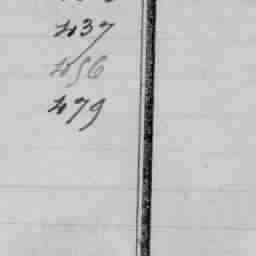 437
456
479